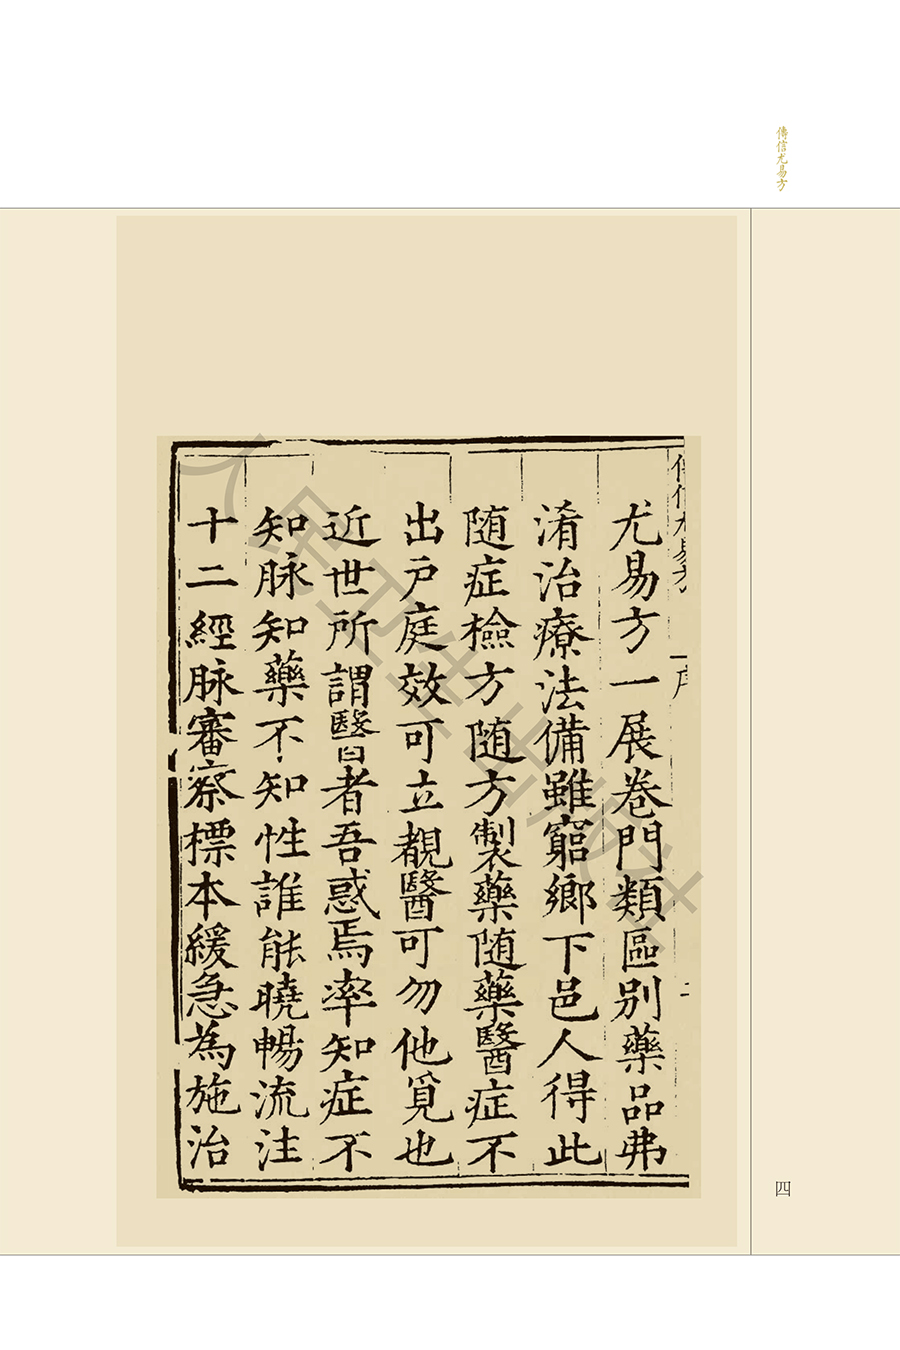 傳信尤易方
傳信尤易方 序 二
尤易方一展卷門類區別藥品弗
淆治療法備雖窮鄉下邑人得此
随症檢方随方製藥随藥醫症不
出戸庭效可立覩醫可勿他覓也
近世所謂醫曰者吾惑焉率知症不
知脉知藥不知性誰能曉暢流注
十二經脉審察標本緩急為施治
四
人民卫生出版社